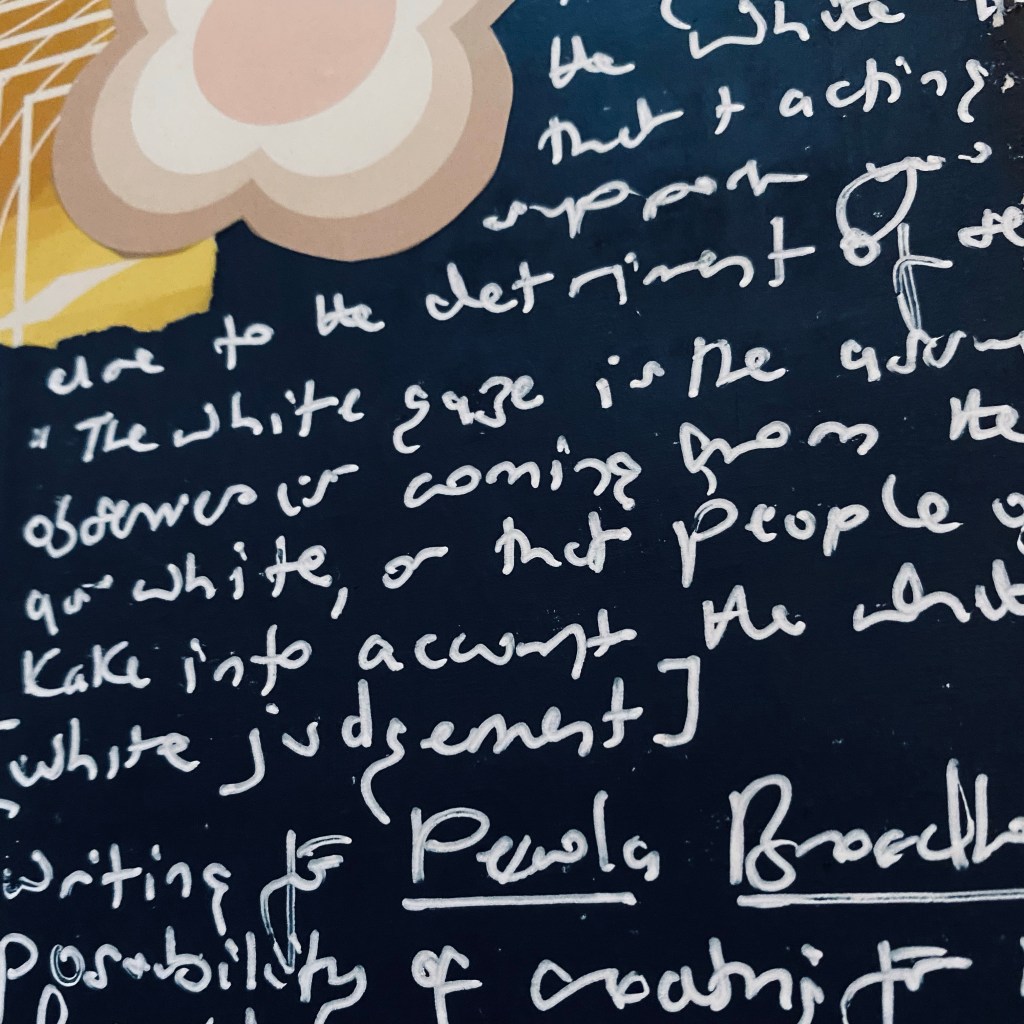 the white
that + acting
support
to the detriment of se
* The white gaze is the assum
observer is coming from the
white, or that people o
Kake into account the whit
[white judgement]
writing for Broadh
possibility of creating for